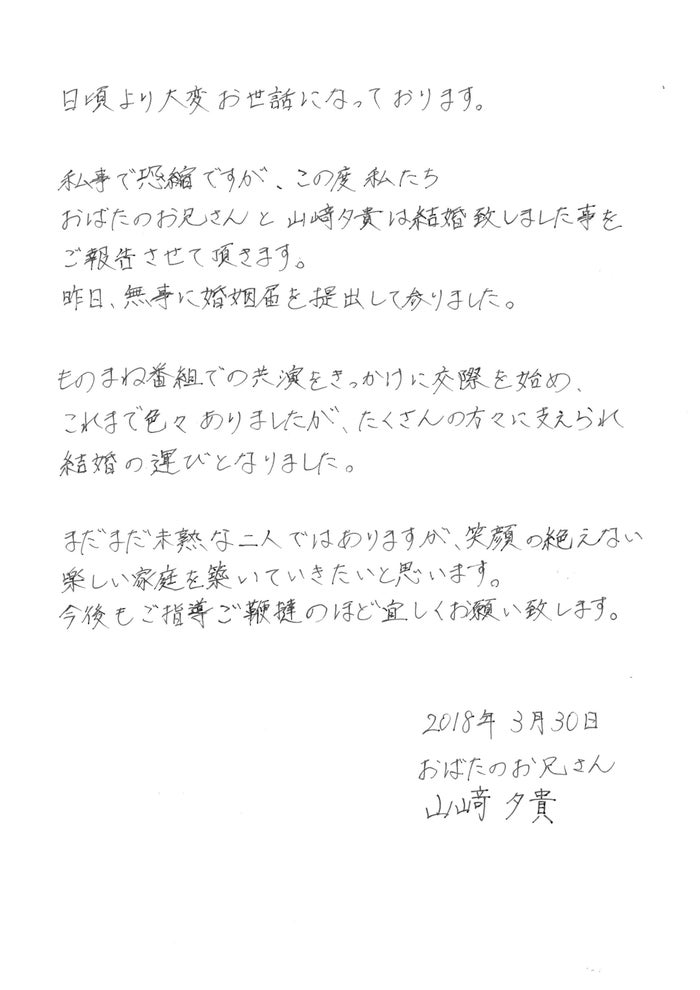 日頃より大変お世話になっております。
私事で恐縮ですが、この度 私たち
おばたのお兄さんと 山﨑夕貴は結婚致しました事を
ご報告させて頂きます。
昨日、無事に婚姻届を提出して参りました。
ものまね番組での共演をきっかけに交際を始め、
これまで色々ありましたが、たくさんの方々に支えられ
結婚の運びとなりました。
まだまだ未熟な二人ではありますが、笑顔の絶えない
楽しい家庭を築いていきたいと思います。
今後もご指導ご鞭撻のほど宜しくお願い致します。
2018年 3月30日
おばたのお兄さん
山﨑 夕貴